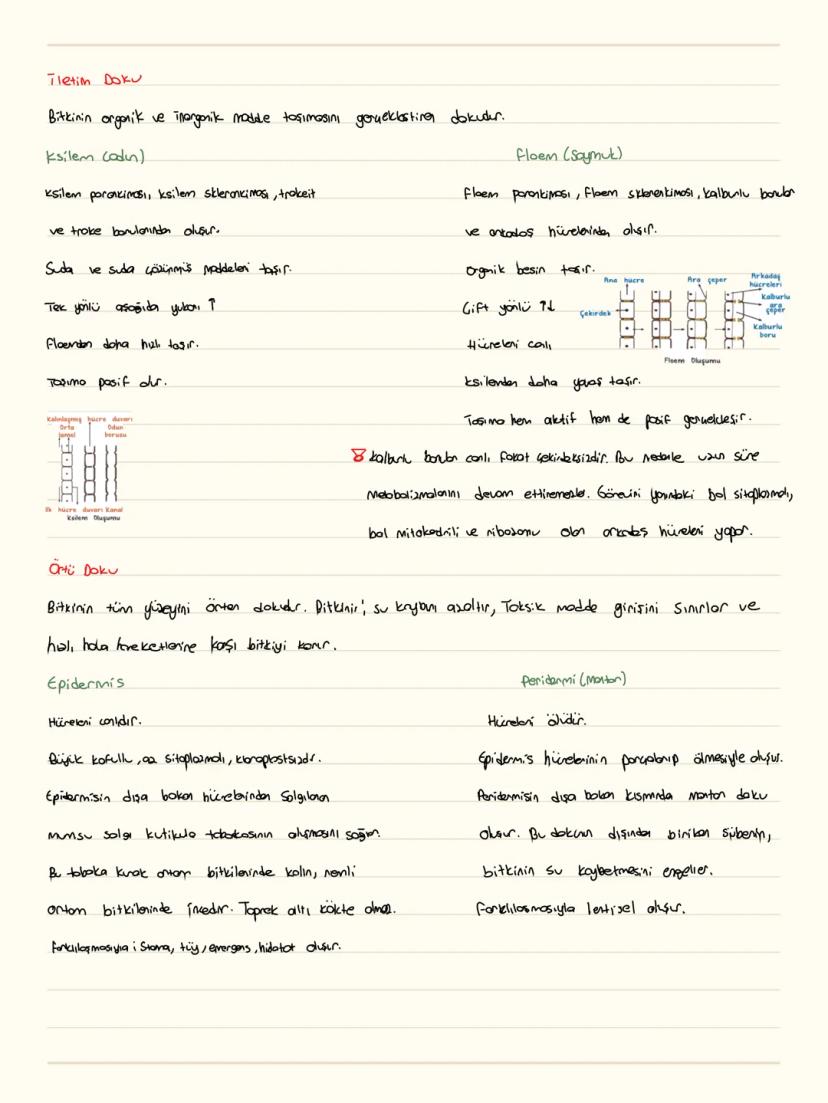 İletim Doku
Bitkinin organik ve İnorganik madde taşımasını gerçekleştiren dokudur.
Ksilem (odun)
Ksilem parankiması, ksilem sklerankiması, trakeit
ve trake borularından oluşur.
Suda ve suda çözünmüş maddeleri taşır.
Tek yönlü aşağıda yukarı ↑
Floemden daha hızlı taşır.
Taşıma pasif olur.
Kalınlaşmış hücre duvarı
Orta lamel
Odun borusu
İlk hücre duvarı Kanal
Ksilem Oluşumu
Floem (Soymuk)
Floem parankiması, Floem sklerenkiması, kalburlu borular
ve arkadaş hücrelerinden oluşur.
Organik besin taşır.
Çift yönlü ↑↓
Hücreleri canlı
Ksilemden daha yavaş taşır.
Taşıma hem aktif hem de pasif gerçekleşir.
Ana hücre
Ara çeper
Arkadaş hücreleri
Kalburlu ara çeper
Çekirdek
Kalburlu boru
Floem Oluşumu
Kalburlu borular canlı fakat çekirdeksizdir. Bu nedenle uzun süre
metabolizmalarını devam ettiremezler. Görevini yanındaki bol sitoplazmalı,
bol mitokodrili ve ribozomu olan arkadaş hücreleri yapar.
Örtü Doku
Bitkinin tüm yüzeyini örten dokudur. Bitkinin; su kaybını azaltır, Toksik madde girişini sınırlar ve
hızlı hava hareketlerine karşı bitkiyi korur.
Epidermis
Hücreleri canlıdır.
Büyük kofullu, az sitoplazmalı, kloroplastsızdır.
Epidermisin dışa bakan hücrelerinden Salgılanan
mumsu salgı kutikula tabakasının oluşmasını sağlar.
Bu tabaka kurak ortam bitkilerinde kalın, nemli
ortam bitkilerinde incedir. Toprak altı kökte olmaz.
Farklılaşmasıyla; Stoma, tüy, emergens, hidatot oluşur.
Peridermi (Mantar)
Hücreleri ölüdür.
Epidermis hücrelerinin parçalanıp ölmesiyle oluşur.
Peridermisin dışa bakan kısmında mantar doku
oluşur. Bu dokunun dışında biriken Süberin,
bitkinin su kaybetmesini engeller.
Farklılaşmasıyla lentisel oluşur.